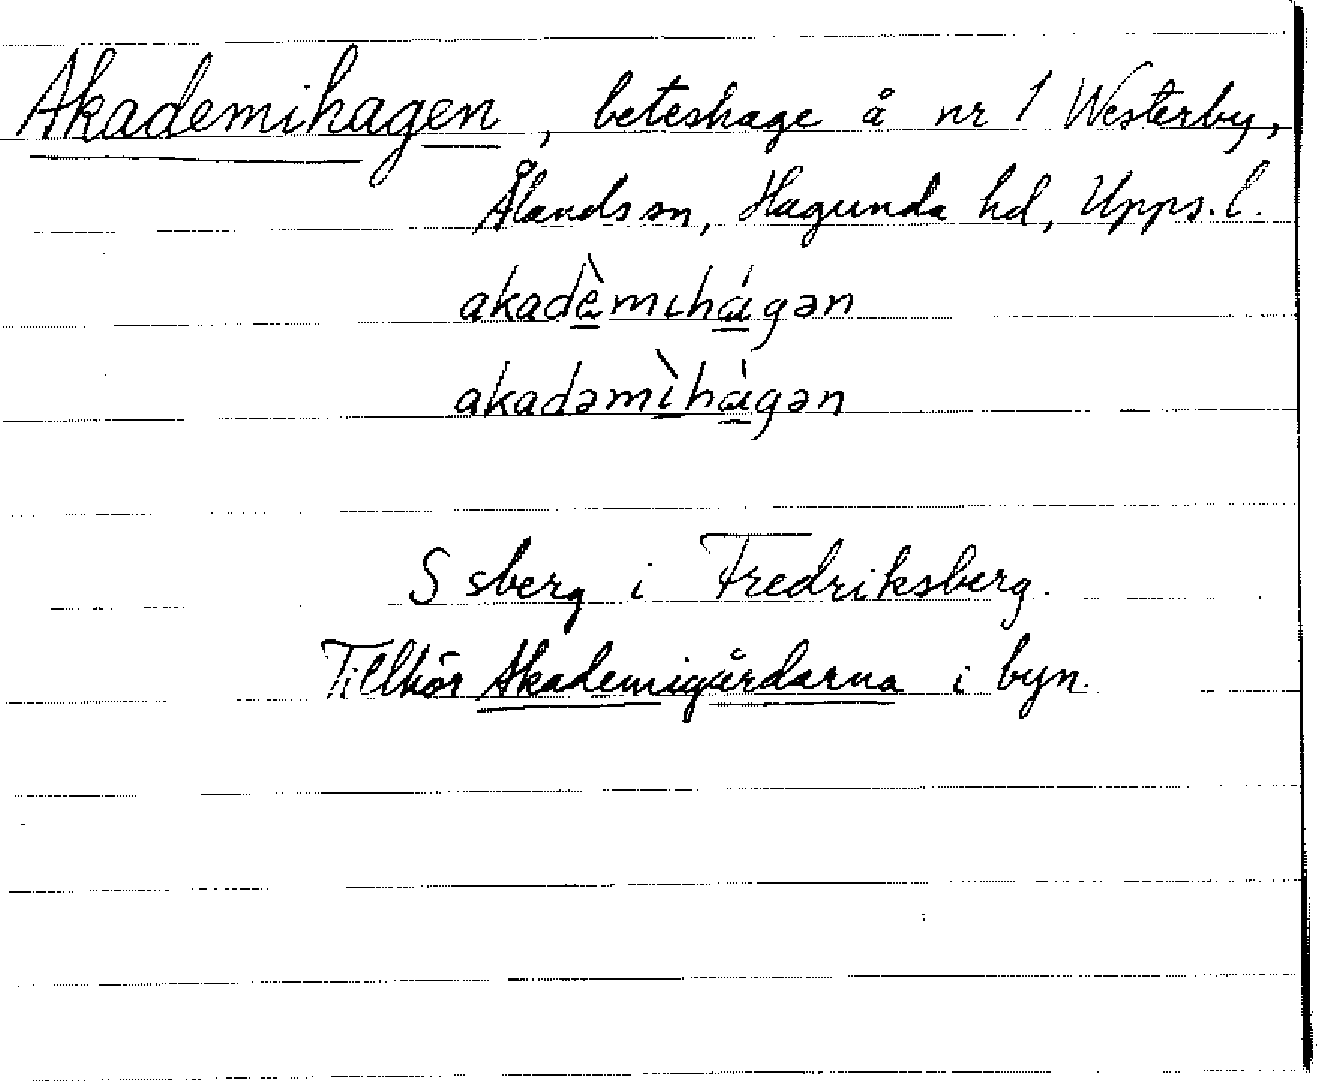 Akademihagen, beteshage å nr 1 Westerby,
Ålands sn, Hagunda hd, Upps. l.
akadèmıhágən
akadəmìhágən
S sberg i Fredriksberg.
Tillhör Akademigårdarna i byn.